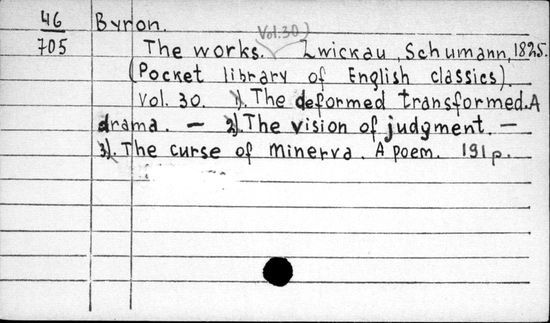 46 Byron. Vol. 30)
705 The works. Zwickau, Schumann, 1825.
(Pocket library of English classics).
Vol. 30. 1). The deformed transformed. A
drama. — 2). The vision of judgment. —
3). The curse of Minerva. A poem. 191 p.